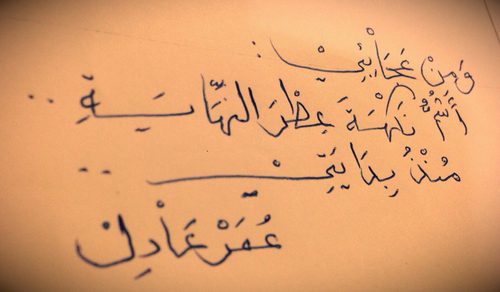 وَمِنْ عَجَائِبِيْ :
أَشُمُّ عِطْرَ النِّهَايَةِ ..
مُنْذُ بِدَايَتِيْ ..
عُمَرْ عَادِلْ